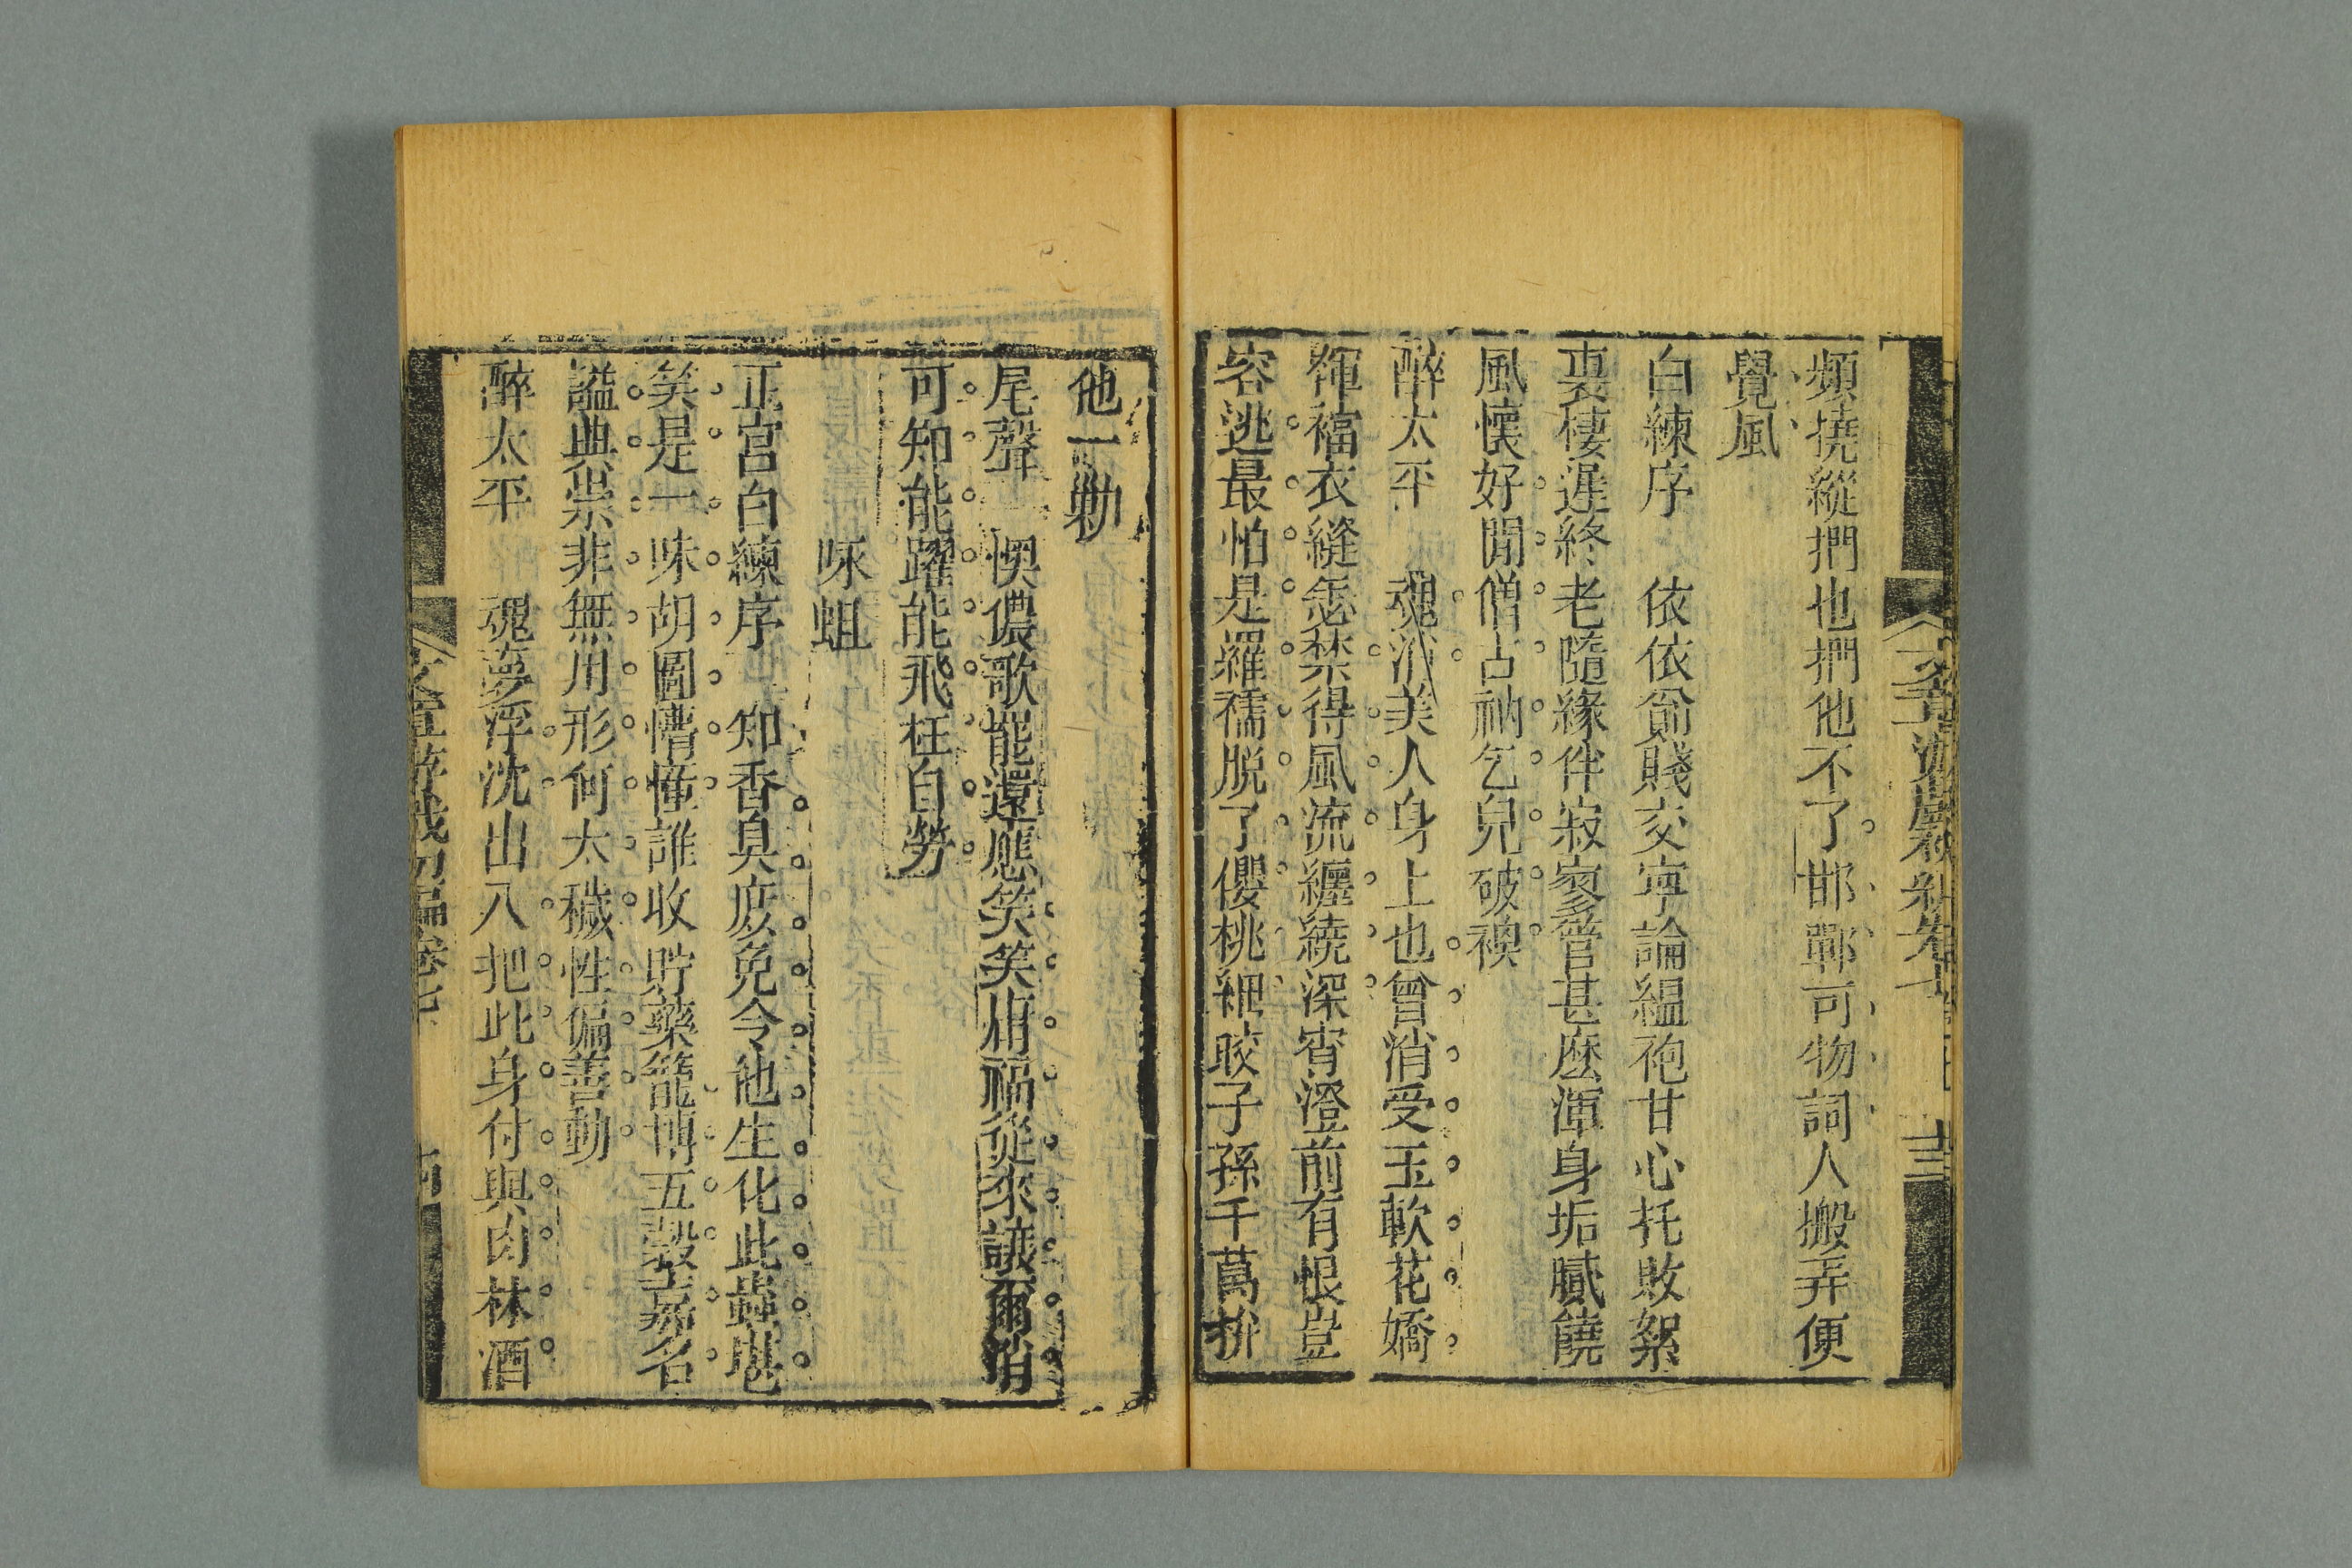 頻撓縱捫也捫他不了邯鄲可物詞人搬弄便
覺風
白練序　依依貧賤交寧論縕袍甘心托敗絮
裏棲遲終老隨緣伴寂寥管甚麽渾身垢膩饒
風懷好閒僧占衲乞兒破襖
醉太平　魂消美人身上也曾消受玉軟花嬌
褌襠衣縫恁禁得風流纏繞深宵澄前有恨豈
容逃最怕是羅襦脱了儘桃細咬子孫千萬拚
他一勦
尾聲　懊儂歌罷還應笑笑湏福從來讓爾消
可知能躍能飛枉自勞
咏蛆
正宮白練序　知香臭庶免令他生化此蟲堪
笑是一味胡圖懵懂誰收貯藥籠博五穀嘉名
謚典崇非無用形何太穢性偏善動
醉太平　魂夢浮沈出入把此身付與肉林酒